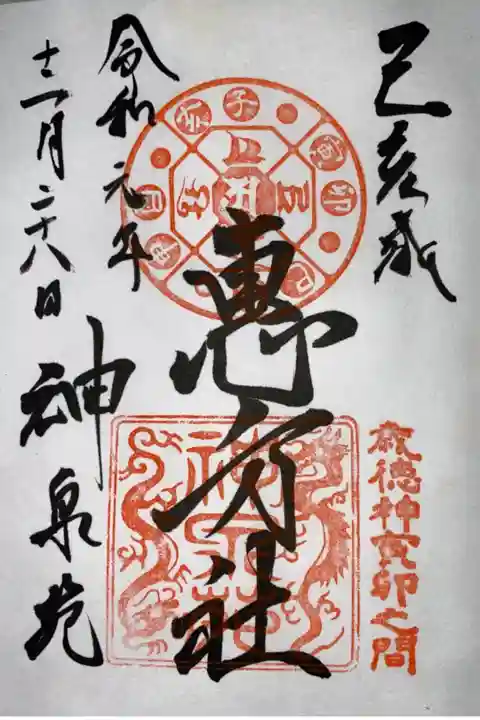 己亥歳
恵方社
歳徳神寅卯之間
令和元年
十二月二十八日
神泉苑
子
寅
卯